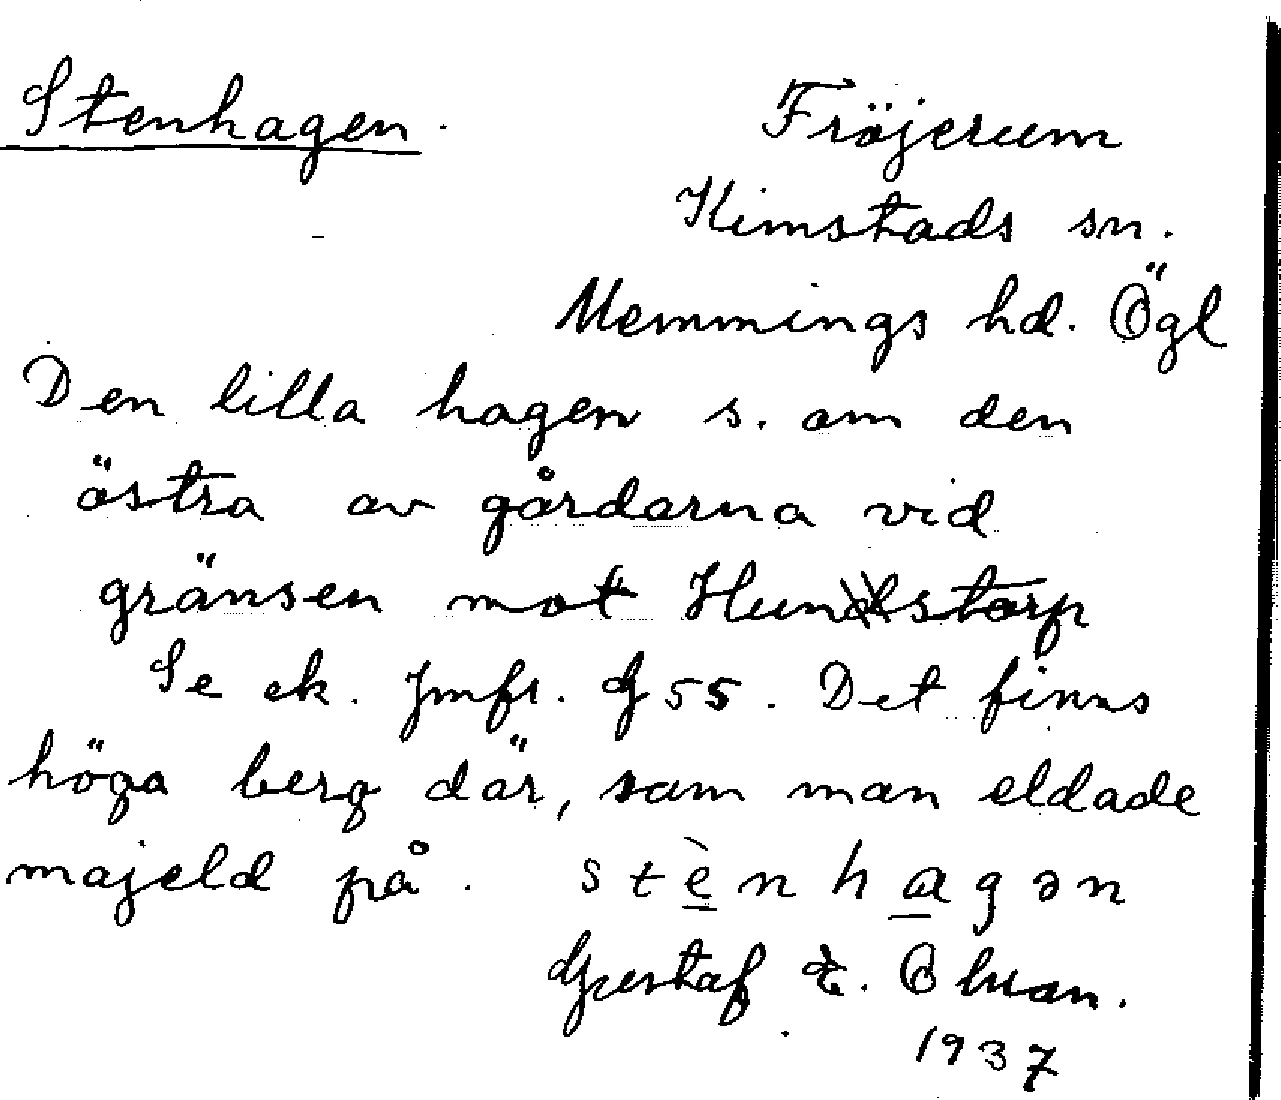 Stenhagen.
Fröjerum
Kimstads sn.
Memmings hd. Ögl
Den lilla hagen s. om den
östra av gårdarna vid
gränsen mot Hundstorp
Se ek. Jmfr. G 55. Det finns
höga berg där, som man eldade
majeld på. stè̱nha̱gən
Gustaf E. Ohman.
1937